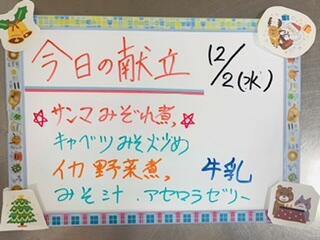 今日の献立
12/2(水)
☆サンマみぞれ煮☆
キャベツみそ炒め
イカ野菜煮 牛乳
みそ汁.アセロラゼリー